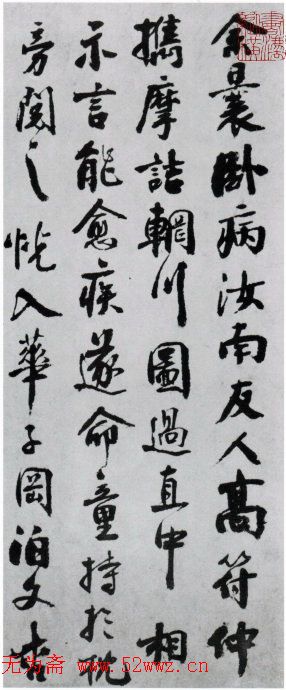 余曩臥病汝南友人高符仲
攜摩詰輞川圖過直中 相
示言能愈疾遂命童持於枕
旁閱之恍入華子岡泊文杏
无为斋 www.52wwz.cn